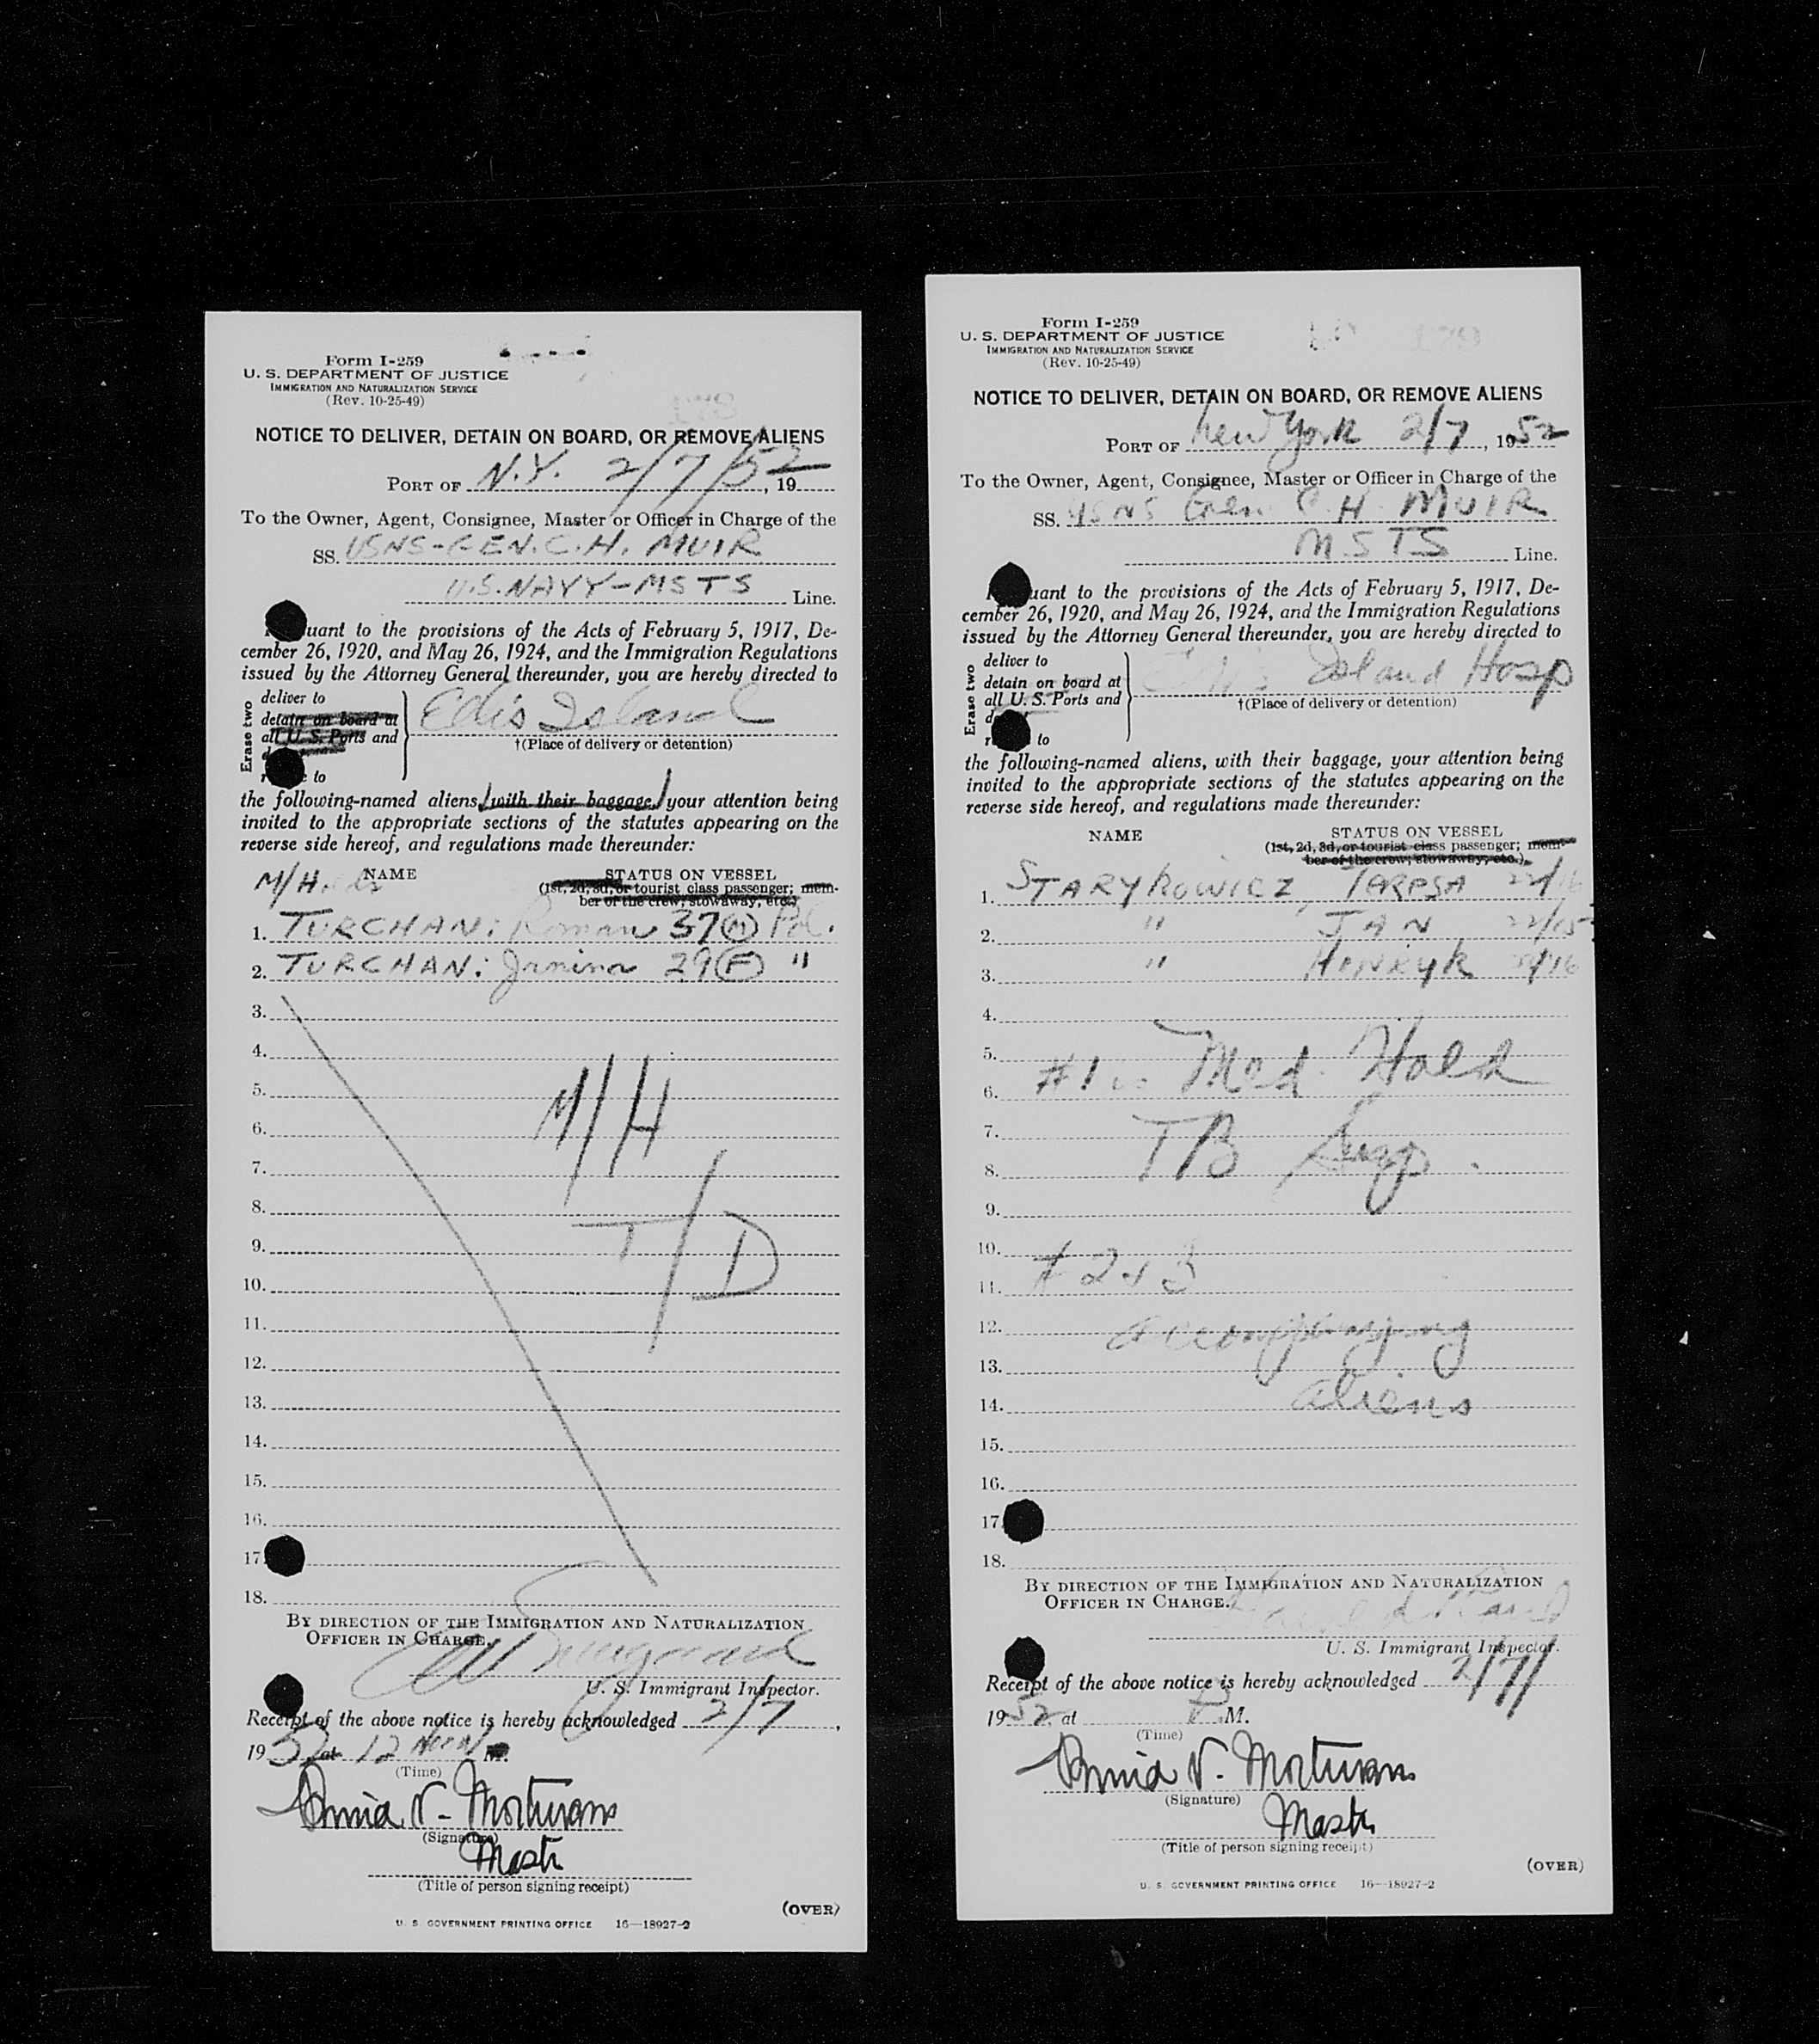 Form I-259
U. S. DEPARTMENT OF JUSTICE
IMMIGRATION AND NATURALIZATION SERVICE
(Rev. 10-25-49)
NOTICE TO DELIVER, DETAIN ON BOARD, OR REMOVE ALIENS
PORT OF N.Y. 2/7/52, 19
To the Owner, Agent, Consignee, Master or Officer in Charge of the
SS. USNS-GEN. C. H. MUIR
U.S. NAVY-MSTS Line.
uant to the provisions of the Acts of February 5, 1917, De-
cember 26, 1920, and May 26, 1924, and the Immigration Regulations
issued by the Attorney General thereunder, you are hereby directed to
Erase two
deliver to
detain on board at
all U. S. Ports and
to
Ellis Island
†(Place of delivery or detention)
the following-named aliens, with their baggage, your attention being
invited to the appropriate sections of the statutes appearing on the
reverse side hereof, and regulations made thereunder:
M/H NAME STATUS ON VESSEL
(1st, 2d, 3d, or tourist class passenger; mem-
ber of the crew; stowaway, etc.)
1. TURCHAN: Roman 37 (M) Pol.
2. TURCHAN: Janina 29 (F) "
3.
4.
5.
6. M/H
7.
8.
9. T/D
10.
11.
12.
13.
14.
15.
16.
17.
18.
BY DIRECTION OF THE IMMIGRATION AND NATURALIZATION
OFFICER IN CHARGE.
U. S. Immigrant Inspector.
Receipt of the above notice is hereby acknowledged 2/7,
1952, at 12 Noon M.
(Time)
V.
(Signature)
(Title of person signing receipt)
(OVER)
U. S. GOVERNMENT PRINTING OFFICE 16—18927-2
Form I-259
U. S. DEPARTMENT OF JUSTICE
IMMIGRATION AND NATURALIZATION SERVICE
(Rev. 10-25-49)
NOTICE TO DELIVER, DETAIN ON BOARD, OR REMOVE ALIENS
PORT OF New York 2/7, 1952
To the Owner, Agent, Consignee, Master or Officer in Charge of the
SS. USNS Gen. C. H. MUIR
MSTS Line.
uant to the provisions of the Acts of February 5, 1917, De-
cember 26, 1920, and May 26, 1924, and the Immigration Regulations
issued by the Attorney General thereunder, you are hereby directed to
Erase two
deliver to
detain on board at
all U. S. Ports and
to
Ellis Island Hosp
†(Place of delivery or detention)
the following-named aliens, with their baggage, your attention being
invited to the appropriate sections of the statutes appearing on the
reverse side hereof, and regulations made thereunder:
NAME STATUS ON VESSEL
(1st, 2d, 3d, or tourist class passenger; mem-
ber of the crew; stowaway, etc.)
1. STARYKOWICZ, TERESA 22/16
2. " JAN 22/15
3. " HENRYK
4.
5.
6. #1 Med. Hold
7.
8. TB Susp.
9.
10.
11. #2 & 3
12. accompanying
13.
14. aliens
15.
16.
17.
18.
BY DIRECTION OF THE IMMIGRATION AND NATURALIZATION
OFFICER IN CHARGE.
U. S. Immigrant Inspector.
Receipt of the above notice is hereby acknowledged 2/7/
1952, at P. M.
(Time)
V.
(Signature)
(Title of person signing receipt)
(OVER)
U. S. GOVERNMENT PRINTING OFFICE 16—18927-2